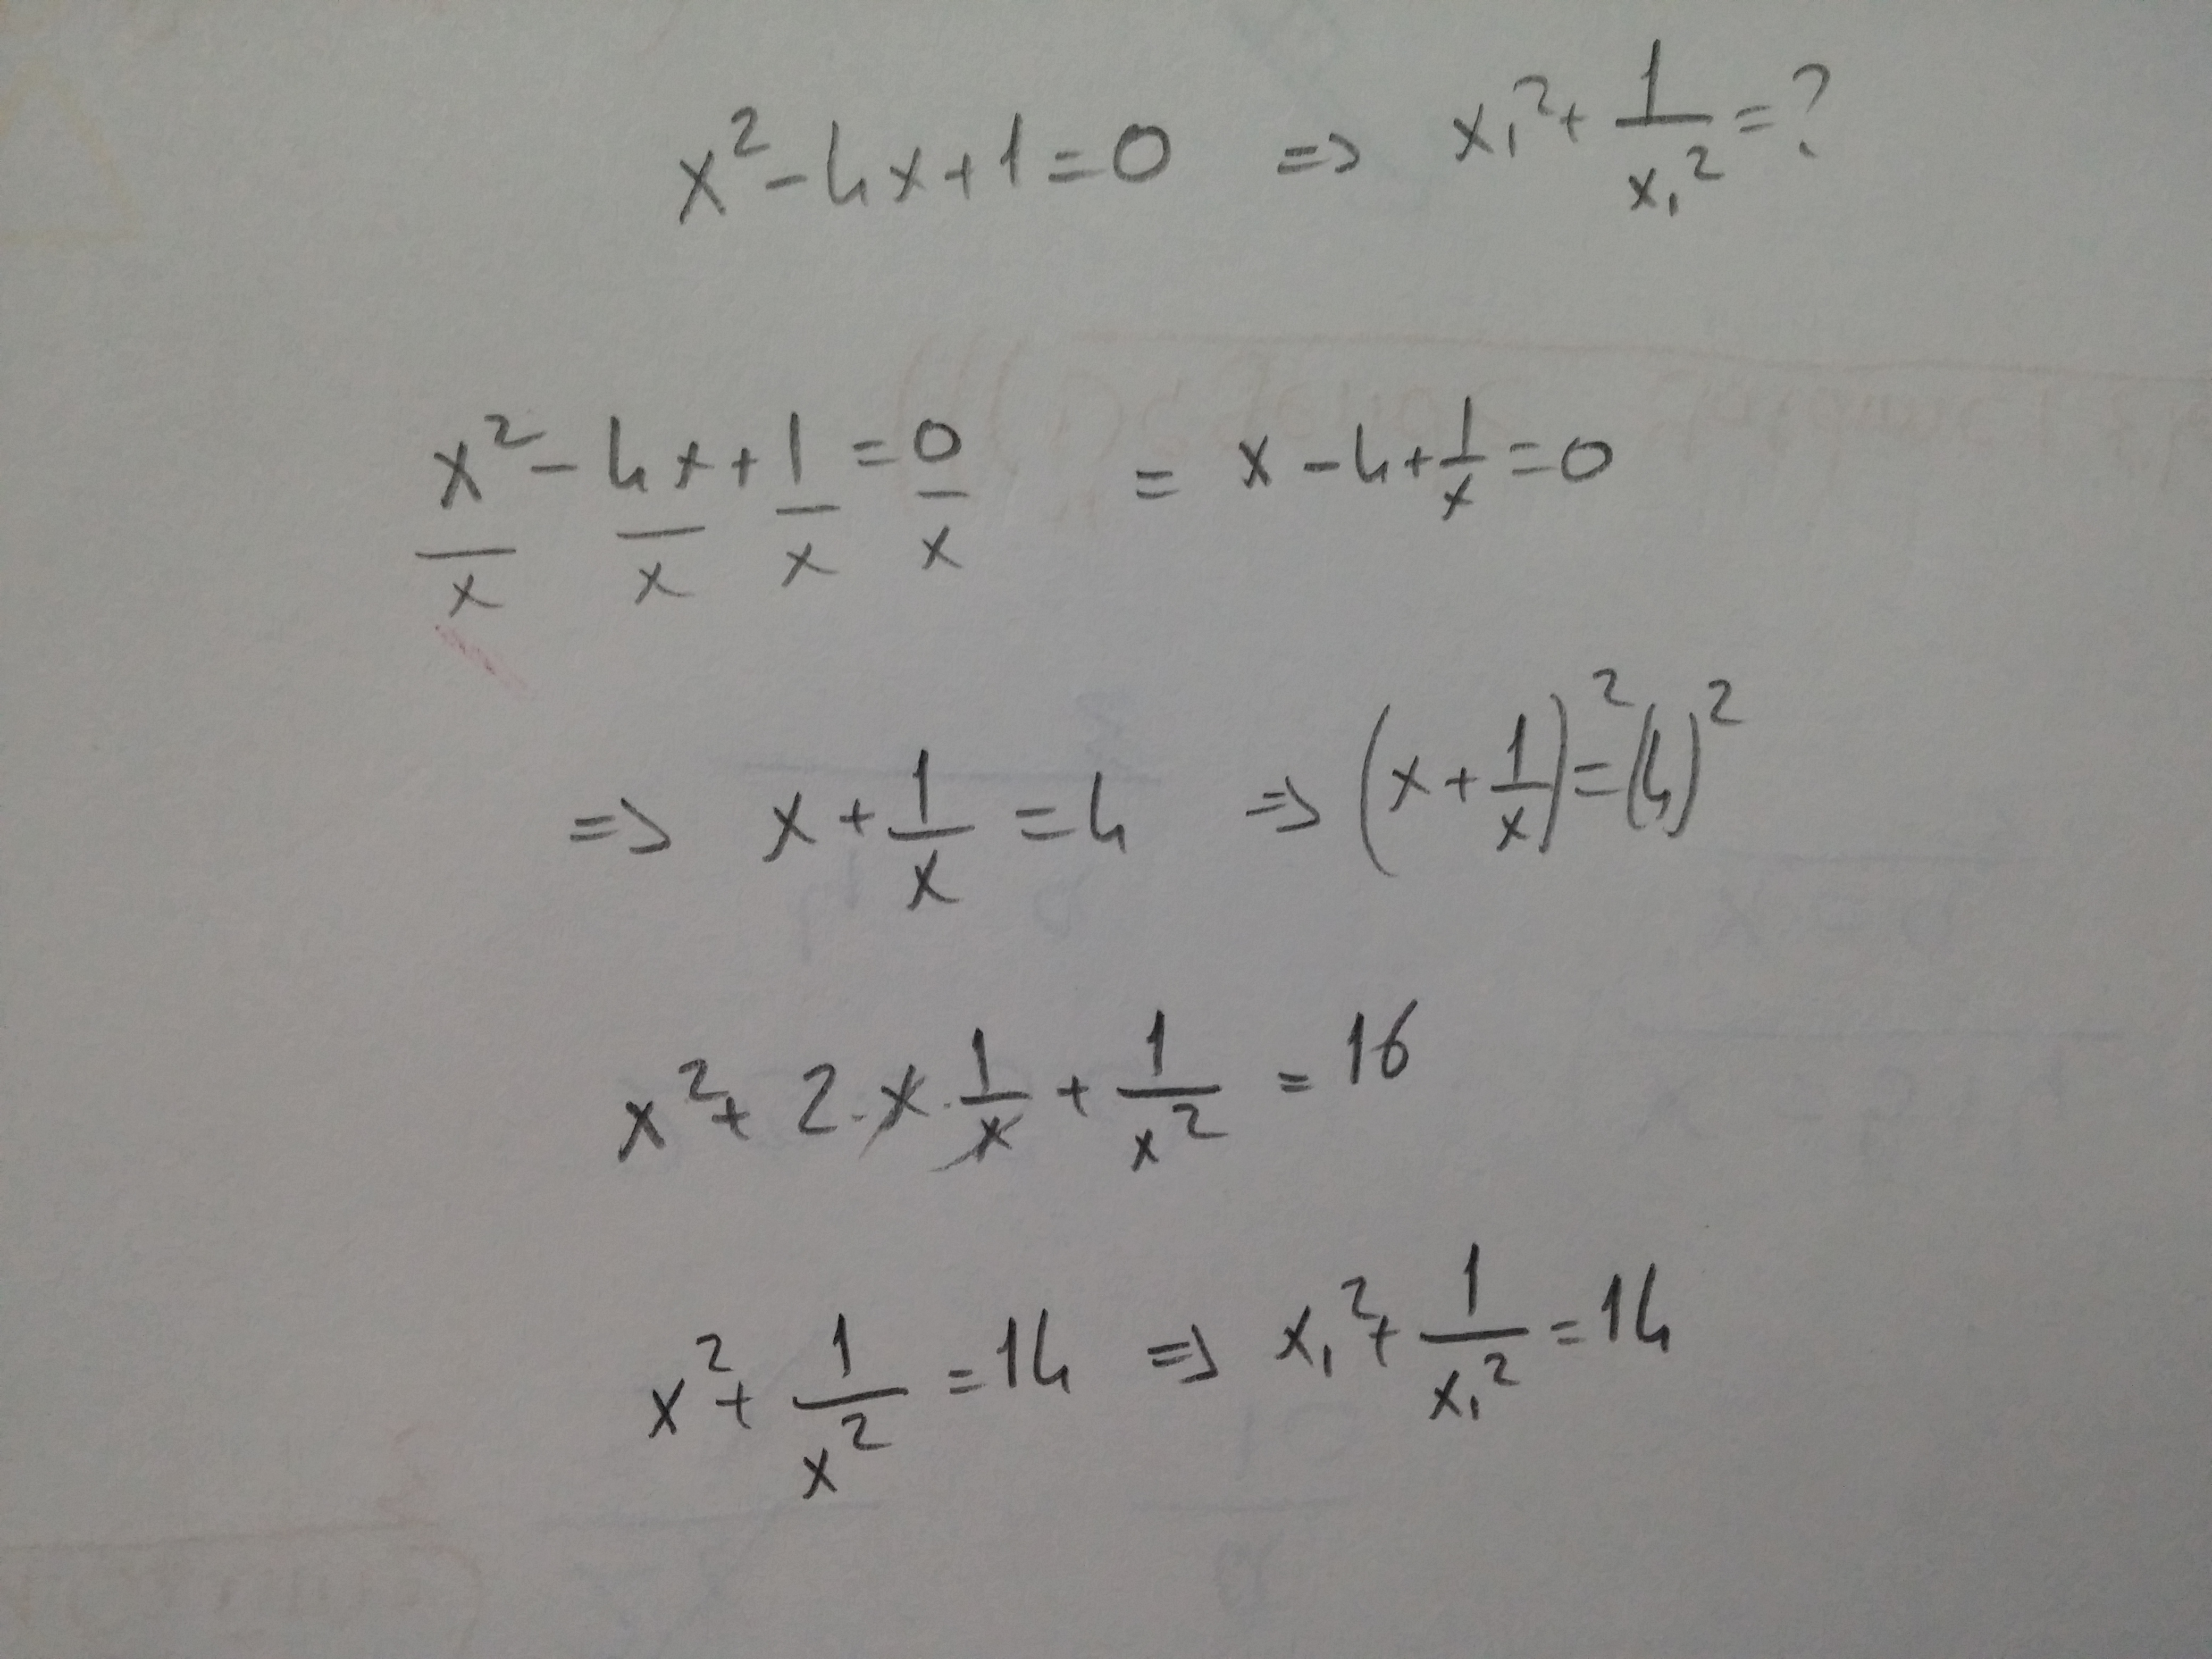 x² - 4x + 1 = 0 ⇒ x₁² + 1/x₁² = ?
x²/x - 4x/x + 1/x = 0/x = x - 4 + 1/x = 0
⇒ x + 1/x = 4 ⇒ (x + 1/x)² = (4)²
x² + 2·x·1/x + 1/x² = 16
x² + 1/x² = 14 ⇒ x₁² + 1/x₁² = 14